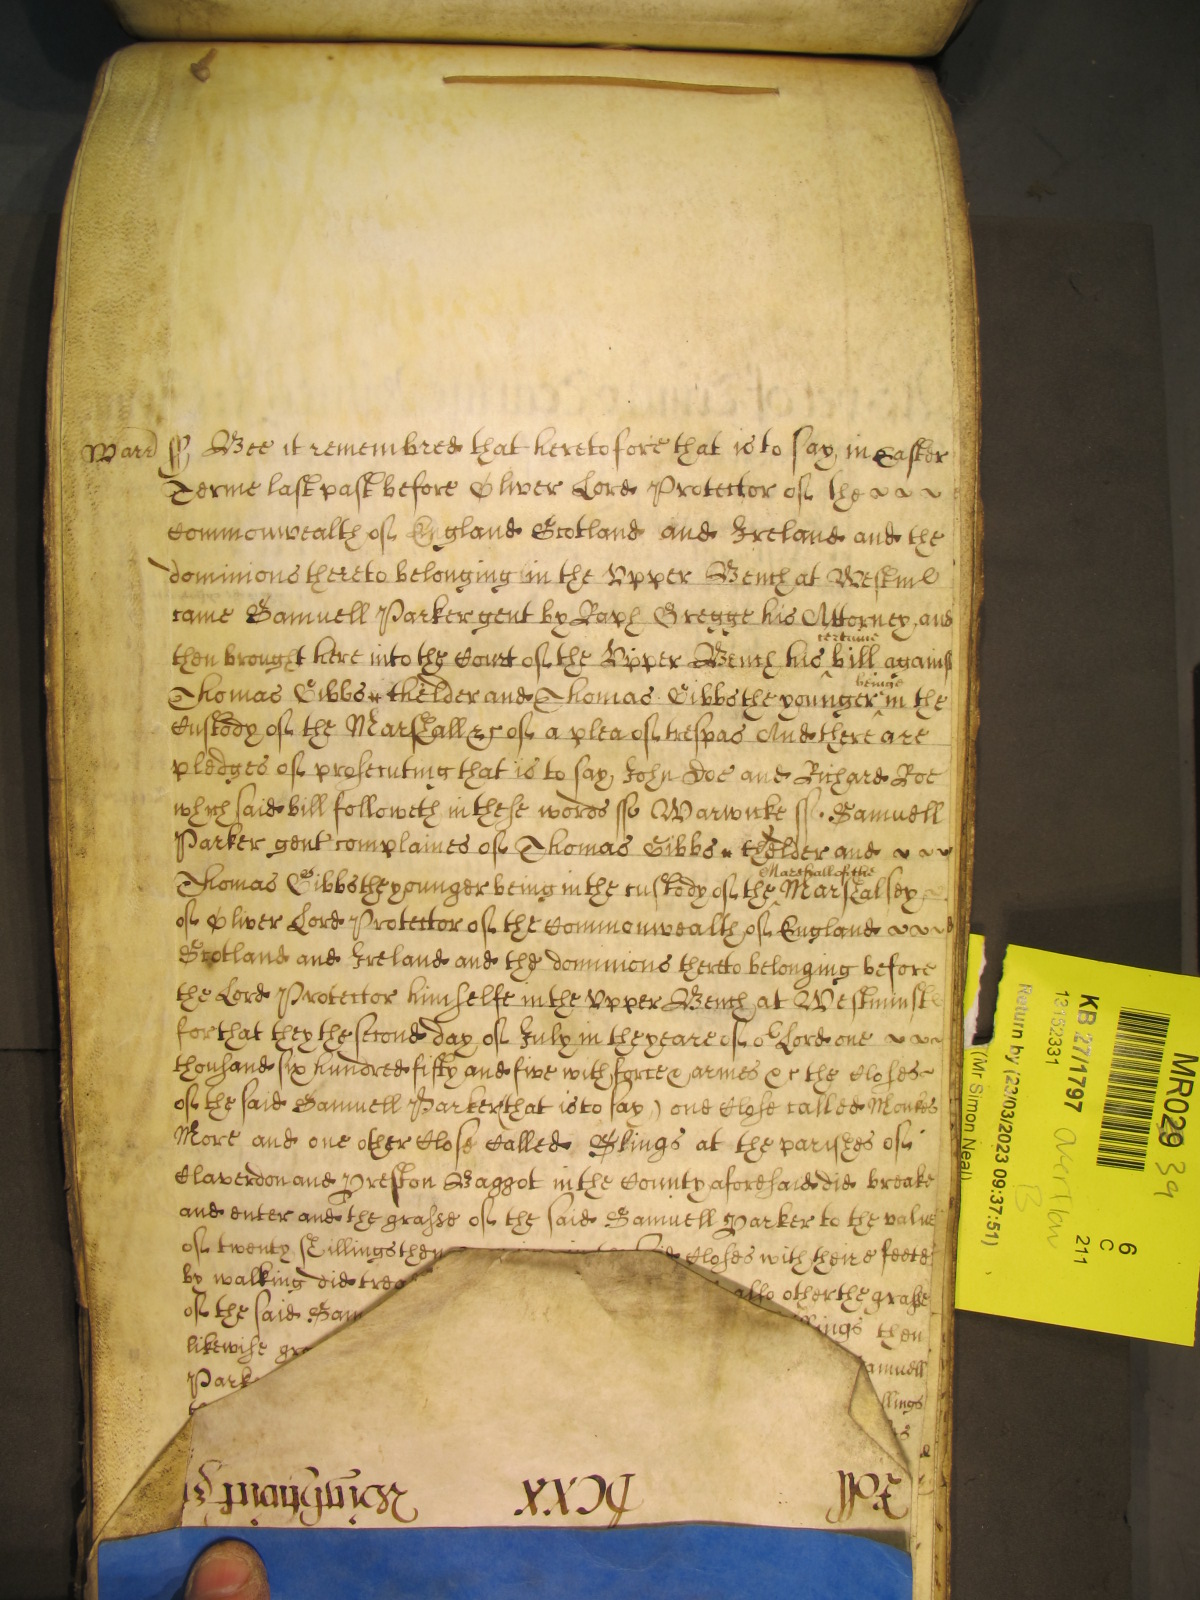 Warr ss Bee it remembred that heretofore that is to say in Easter
Terme last past before Oliver Lord Protector of the
Commonwealth of England Scotland and Ireland and the
dominions thereto belonging in the Upper Bench at Westm
came Samuell Parker gent by Raph Gregge his Attorney, and
then brought here into the Court of the Upper Bench his certaine bill against
Thomas Gibbs thelder and Thomas Gibbs the younger beinge in the
Custody of the Marshall &c of a plea of trespas And there are
pledges of prosecuting that is to say, John Doe and Richard Roe
which said bill followeth in these words ss Warwicke ss. Samuell
Parker gent complaines of Thomas Gibbs thelder and
Thomas Gibbs the younger being in the custody of the Marshall of the Marshalsey
of Oliver Lord Protector of the Commonwealth of England
Scotland and Ireland and the dominions thereto belonging before
the Lord Protector himselfe in the Upper Bench at Westminst
for that they the second day of July in the yeare of or Lord one
thousand six hundred fifty and five with force & armes &c the Closes
of the said Samuell Parker that is to say ) one Close called Monkes
More and one other Close Called at the parishes of
Claverdon and Preston Baggot in the County aforesaid did breake
and enter and the grasse of the said Samuell Parker to the value
of twenty shillings then Closes with their feete
by walking did trea also other the grasse
of the said Sam llings then
likewise gr
Parke amuell
llings
Roll DCXX
KB 27/1797
13152331
Return by (22/03/2023 09:37:51)
(Mr Simon Neal)
MR029
39
6
C
211
B